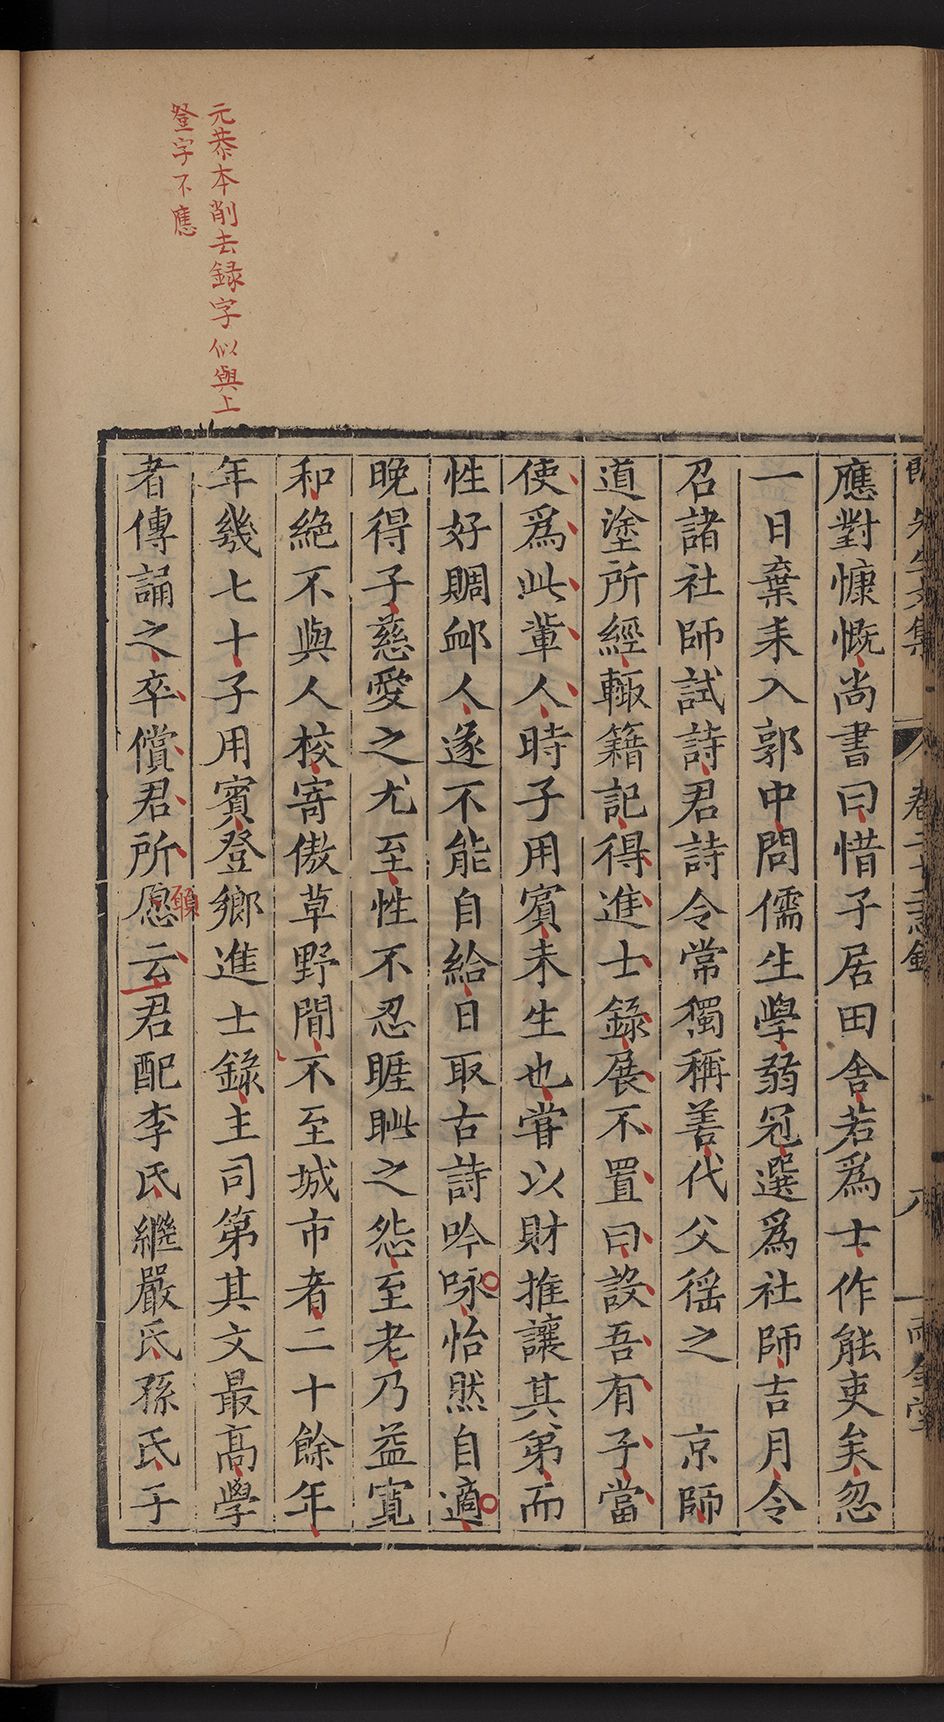 元恭本削去録字似與上
登字不應
應對慷慨尚書曰惜子居田舍若爲士作能吏矣忽
一日棄耒入郭中問儒生學弱冠選爲社師吉月令
召諸社師試詩君詩令常獨稱善代父徭之　京師
道塗所經輙籍記得進士錄展不置曰設吾有子當
使爲此軰人時子用賓未生也嘗以財推讓其弟而
性好賙䘏人遂不能自給日取古詩吟咏怡然自適
晚得子慈愛之尤至性不忍睚眦之怨至老乃益寛
和絶不與人校寄傲草野間不至城市者二十餘年
年幾七十子用賓登鄉進士錄主司第其文最高學
者傳誦之卒償君所愿云君配李氏繼嚴氏孫氏子
願